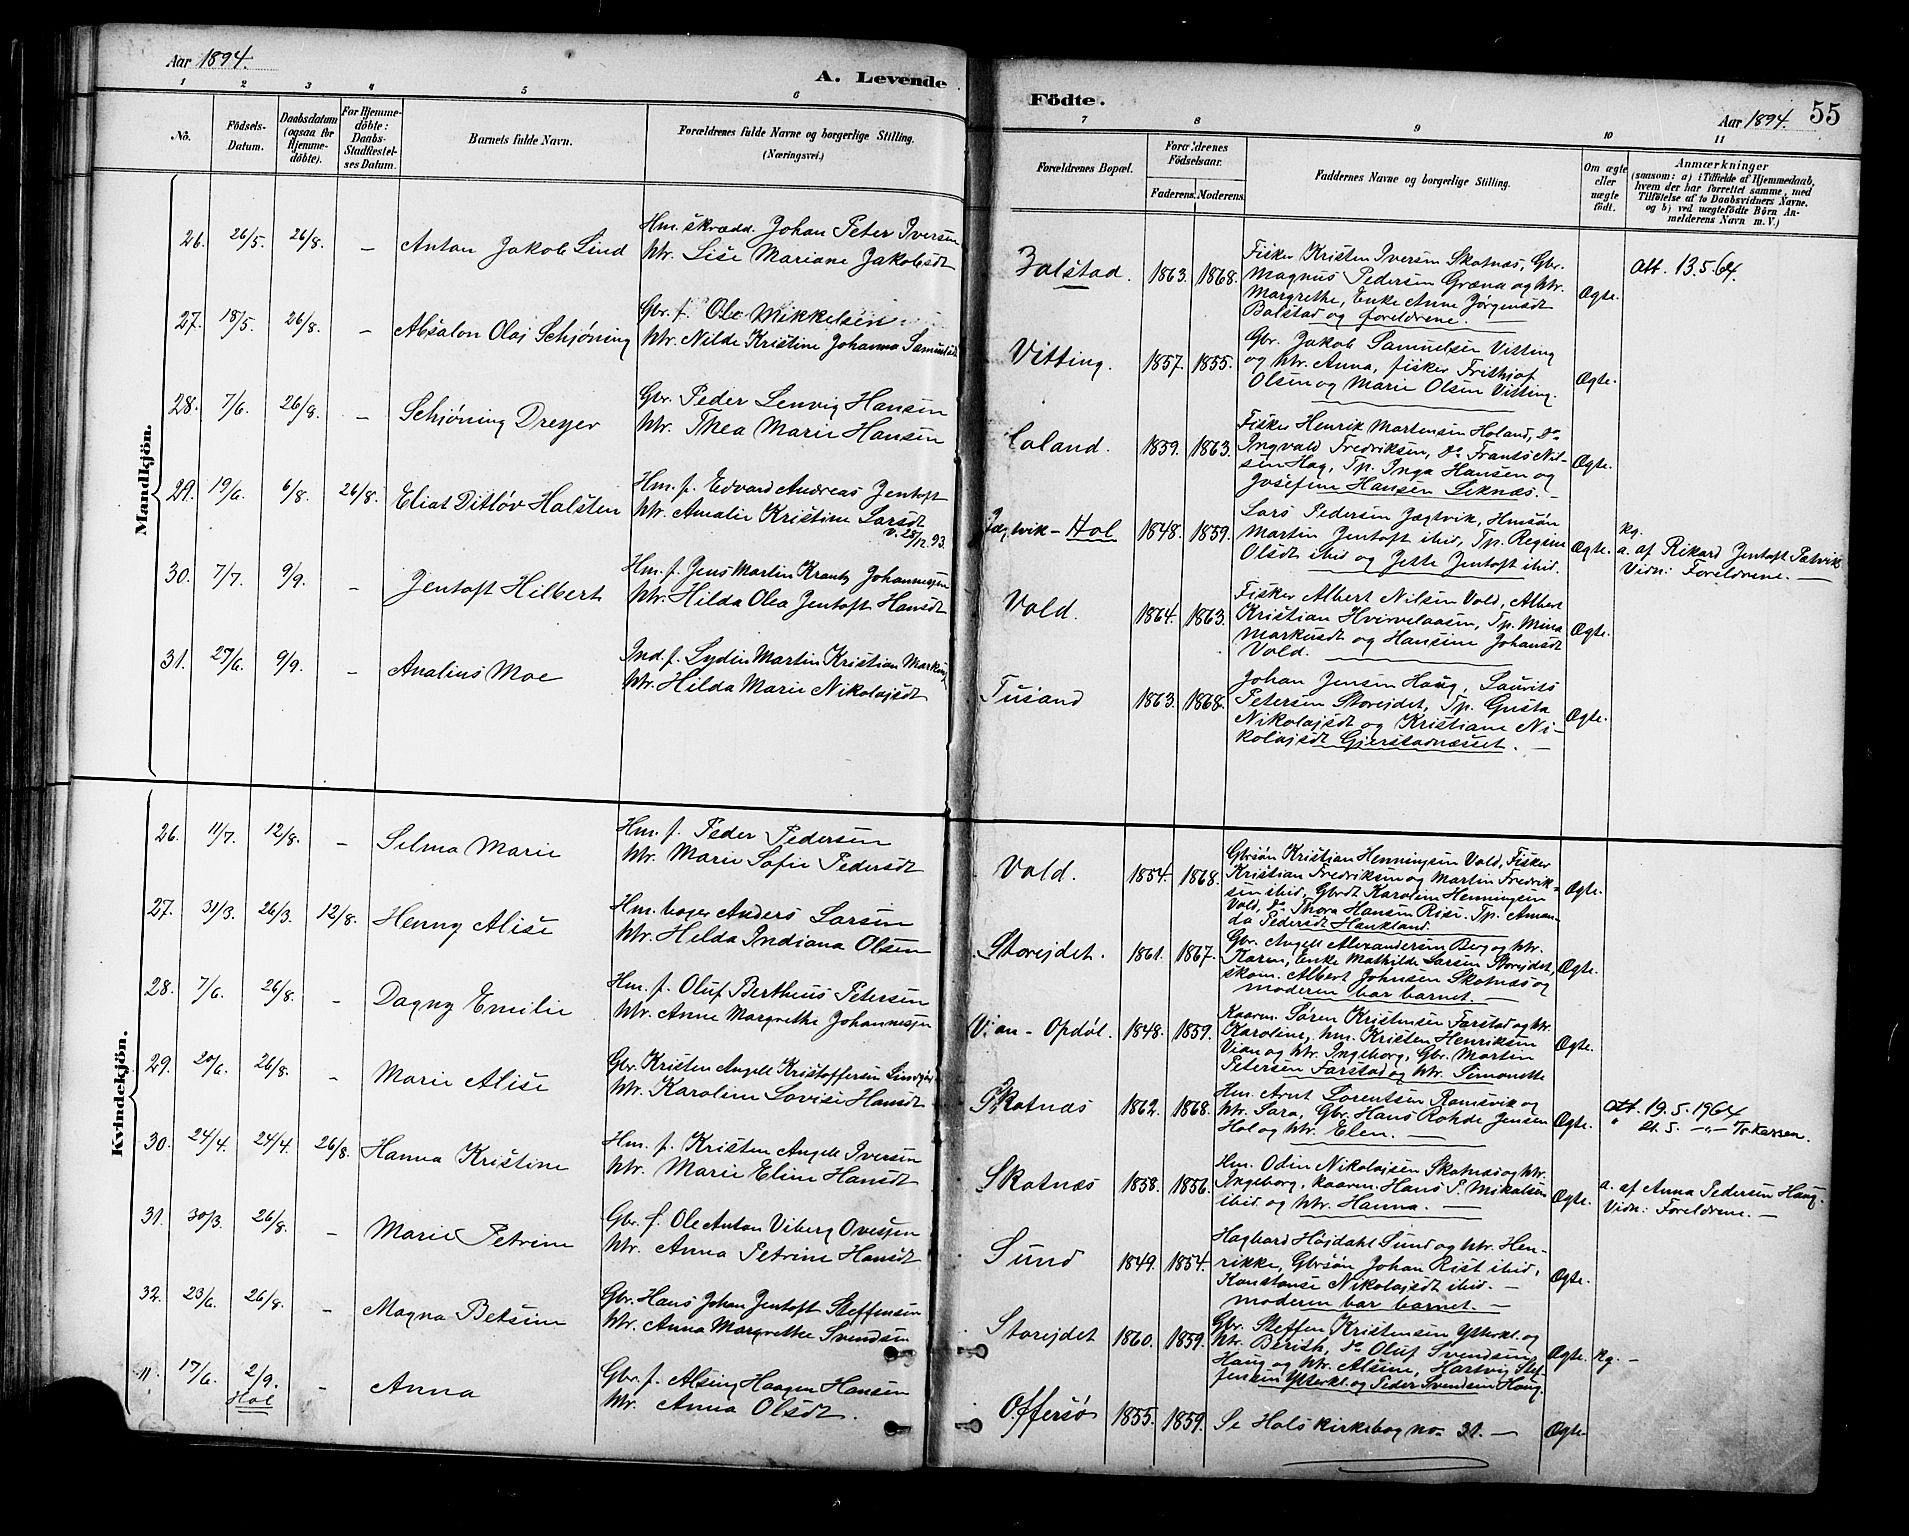 Aar 1894.
A. Levende
Födte.
Aar 1894.
55
1
2
3
4
5
6
7
8
9
10
11
No.
Födsels-
Datum.
Daabsdatum
(ogsaa for
Hjemme-
döbte).
For Hjemme-
döbte:
Daabs-
Stadfæstel-
ses Datum.
Barnets fulde Navn.
Forældrenes fulde Navne og borgerlige Stilling.
(Næringsvei.)
Forældrenes Bopæl.
Forældrenes
Födselsaar.
Faderens.
Moderens.
Faddernes Navne og borgerlige Stilling.
Om ægte
eller
uægte
födt.
Anmærkninger
(saasom: a) i Tilfælde af Hjemmedaab,
hvem der har forrettet samme, med
Tilföielse af to Daabsvidners Navne,
og b) ved uægtefödte Börn An-
melderens Navn m. V.)
Mandkjön.
26. 26/5. 26/8. — Anton Jakob Lind
Hm. skrædd. Johan Peter Iversen
Htr. Lise Mariane Jakobsdt
Balstad. 1863. 1868.
Fisker Kristen Iversen Skotnæs, Gbr.
Magnus Pedersen Græna og Htr.
Margrethe, Enke Anne Jørgensdt
Balstad og foreldrene.
Ægte.
Att. 13.5.64.
27. 18/5. 26/8. — Absalon Olaj Schjøning
Gbr. f. Ole Mikkelsen
Htr. Nilde Kristine Johanna Samuelsdt
Vitting. 1857. 1855.
Gbr. Jakob Samuelsen Vitting
og Htr. Anna, fisker Frithjof
Olsen og Marie Olsen Vitting.
Ægte.
28. 7/6. 26/8. — Schjøning Dreyer
Gbr. Peder Lenvig Hansen
Htr. Thea Marie Hansen
1859. 1863.
Fisker Henrik Martensen Holand, Do
Ingvald Fredriksen, Do Frants Nil-
sen Hag, Tp. Inga Hansen og
Josefine Hansen Leknæs. —
Ægte.
29. 19/6. 6/8. 26/8. Eliat Ditløv Halsten
Hm. f. Edvard Andreas Jentoft
Htr. Amalie Kristine Larsdt
v. 28/12 93.
Jægtvik - Hol 1848. 1859.
Lars Pedersen Jægtvik, Hmsøn
Martin Jentoft ibid, Tp. Regine
Olsdt ibid og Jette Jentoft ibid.
Ægte.
kg.
a. af Rikard Jentoft Patvik
Vidn: Foreldrene. —
30. 7/7. 9/9. — Jentoft Hilbert
Hm. f. Jens Martin Krantz Johannessen
Htr. Hilda Olea Jentoft Hansdt
Vold. 1864. 1863.
Fisker Albert Nilsen Vold, Albert
Kristian Hvervelaasen, Tp. Mina
Markusdt og Hansine Johansdt
Vold.
Ægte.
31. 27/6. 9/9. — Analius Moe
Ind. f. Lydin Martin Kristian
Htr. Hilda Marie Nikolajsdt
Tusand 1863. 1868.
Johan Jensen Haug, Laurits
Petersen Storejdet, Tp. Gusta
Nikolajsdt og Kristiane Ni-
kolajsdt Gjerstadnæsset. —
Ægte.
Kvindekjön.
26. 11/7. 12/8. — Selma Marie
Hm. f. Peder Pedersen
Htr. Marie Sofie Pedersdt
Vold. 1854. 1868.
Gbrsøn Kristian Henningsen Vold, Fisker
Kristian Fredriksen og Martin Fredrik-
sen ibid, Gbrdt Karoline Henningsen
Vold, Do Thora Hansen Risi. Tp. Aman-
da Pedersdt Haukland.
Ægte.
27. 31/3. 26/3. 12/8. Henny Alise
Hm. Anders Larsen
Htr. Hilda Indiana Olsen
Storejdet. 1861. 1867.
Gbr. Angell Alexandersen Berg og Htr.
Karen, Enke Mathilde Larsen Storejdet,
skom. Albert Johnsen Skotnæs og
moderen bar barnet. —
Ægte.
28. 7/6. 26/8. — Dagny Emilie
Hm. f. Oluf Bertheus Petersen
Htr. Anne Margrethe Johannesen
Vian - Opdøl. 1848. 1859.
Kaarm. Søren Kristensen Farstad og Htr.
Karoline, Hm. Kristen Henriksen
Vian og Htr. Ingeborg, Gbr. Martin
Petersen Farstad og Htr. Simonette
Ægte.
29. 20/6. 26/8. — Marie Alise
Gbr. Kristen Angell Kristoffersen
Htr. Karoline Lovise Hansdt
Skotnæs 1862. 1868.
Hm. Arnt Lorentsen Ramsvik og
Htr. Sara, Gbr. Hans Rohde Jensen
Hol og Htr. Elen. —
Ægte.
Att. 19.5.1964
" 21. 5. —"— Tr.kassen.
30. 24/4. 24/4. 26/8. Hanna Kristine
Hm. f. Kristen Angell Iversen
Htr. Marie Eline Hansdt
Skotnæs 1858. 1856.
Hm. Odin Nikolajsen Skotnæs og Htr.
Ingeborg, Kaarm. Hans P. Mikalsen
ibid og Htr. Hanna. —
Ægte.
a. af Anna Pedersen Haug.
Vidn: Foreldrene. —
31. 30/3. 26/8. — Marie Petrine
Gbr. f. Ole Anton Viberg Ovesen
Htr. Anna Petrine Hansdt
Sund 1849. 1854.
Hagbard Højdahl Sund og Htr. Hen-
rikke, Gbrsøn Johan Rist ibid,
Konstanse Nikolajsdt ibid. —
moderen bar barnet. —
Ægte.
32. 23/6. 26/8. — Magna Betsine
Gbr. Hans Johan Jentoft Steffensen
Htr. Anna Margrethe Svendsen
Storejdet 1860. 1859.
Gbr. Steffen Kristensen Ytterkl. og
Htr. Berith, Do Oluf Svendsen
Haug og Htr. Alsine, Hartvig Stef-
fensen Ytterkl. og Peder Svendsen Haug.
Ægte.
kg. —
11. 17/6. 2/9. Hol — Anna
Gbr. f. Alsing Haagen Hansen
Htr. Anna Olsdt.
Offersø 1855. 1859.
Se Hols kirkebog no. 31. —
Ægte